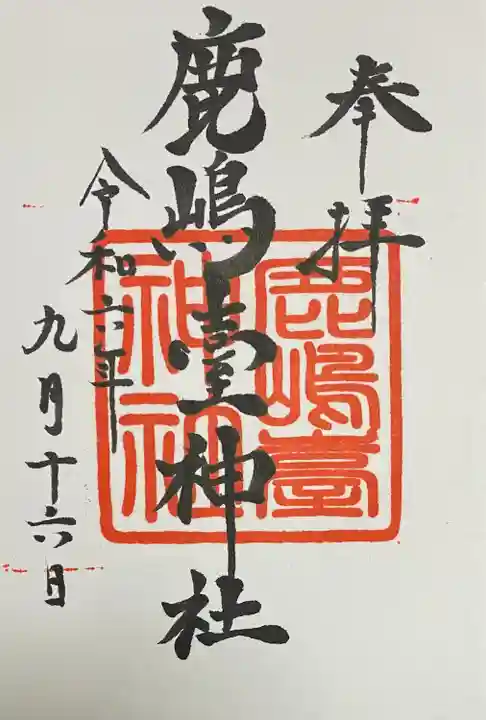 奉拝
鹿嶋臺神社
鹿嶋臺
神社
令和六年
九月十六日